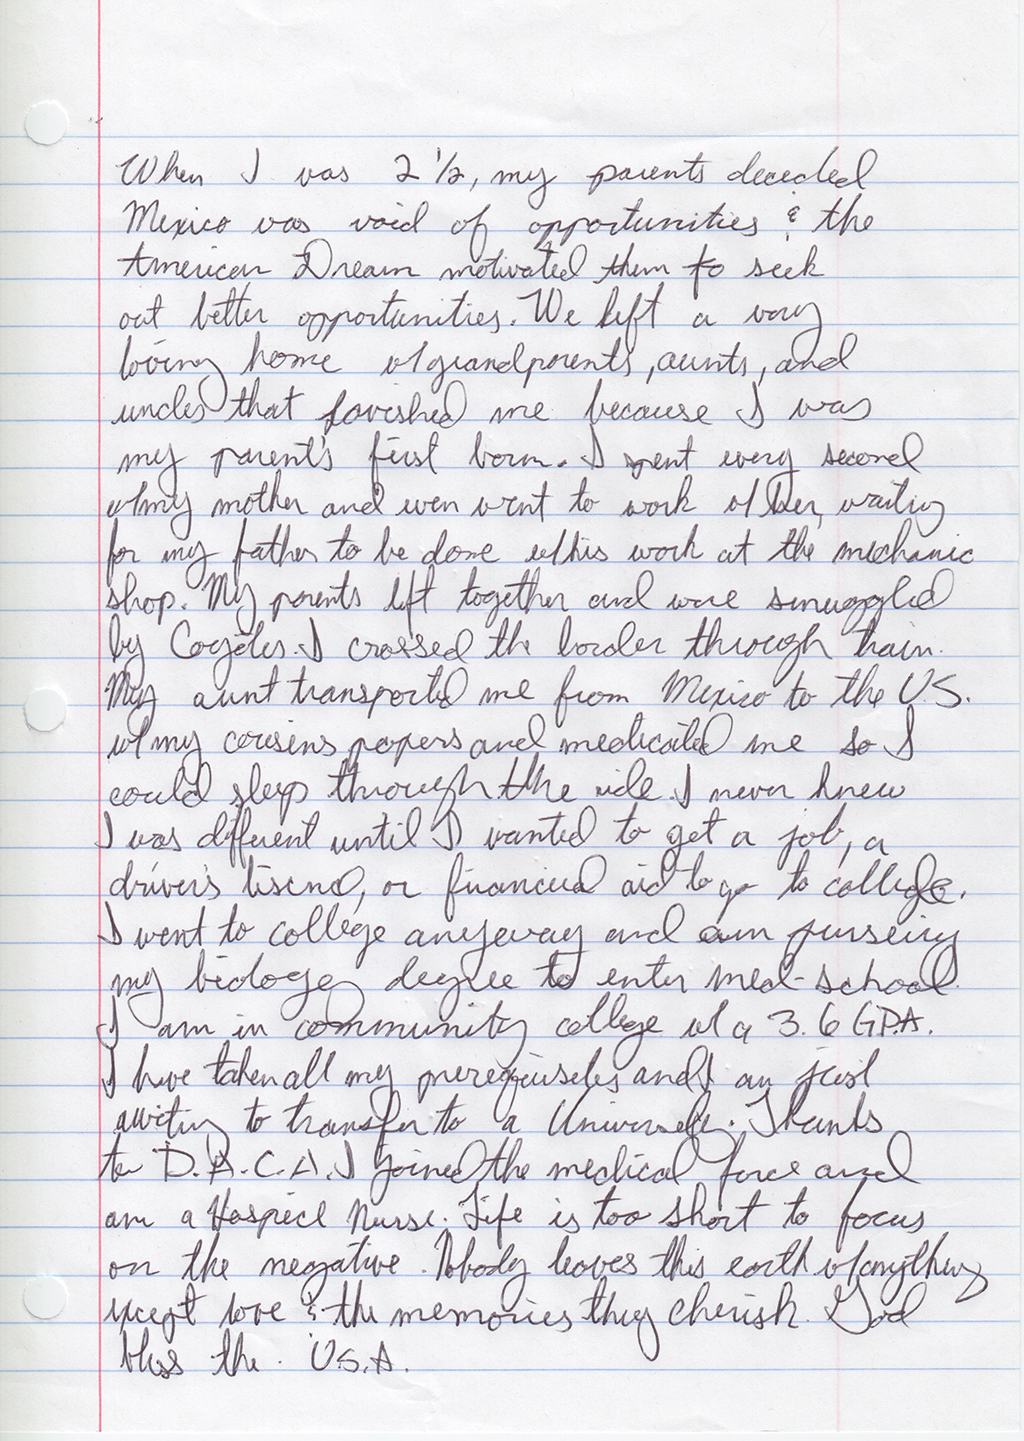 When I was 2 1/2, my parents decided
Mexico was void of opportunities & the
American Dream motivated them to seek
out better opportunities. We left a very
loving home w/grandparents, aunts, and
uncles that lavished me because I was
my parent's first born. I spent every second
w/my mother and even went to work w/her, waiting
for my father to be done w/his work at the mechanic
shop. My parents left together and were smuggled
by Coyotes. I crossed the border through train.
My aunt transported me from Mexico to the U.S.
w/my cousins papers and medicated me so I
could sleep through the ride. I never knew
I was different until I wanted to get a job, a
driver's lisend, or financial aid to go to college.
I went to college anyeway and am purseing
my biology degree to enter med-school.
I am in community college w/a 3.6 GPA.
I have taken all my prerequiseles and am just
awiting to transfer to a University. Thanks
to D.A.C.A. I joined the medical force and
am a Hospice Nurse. Life is too short to focus
on the negative. Nobody leaves this earth w/anything
except love & the memories they cherish. God
bless the U.S.A.